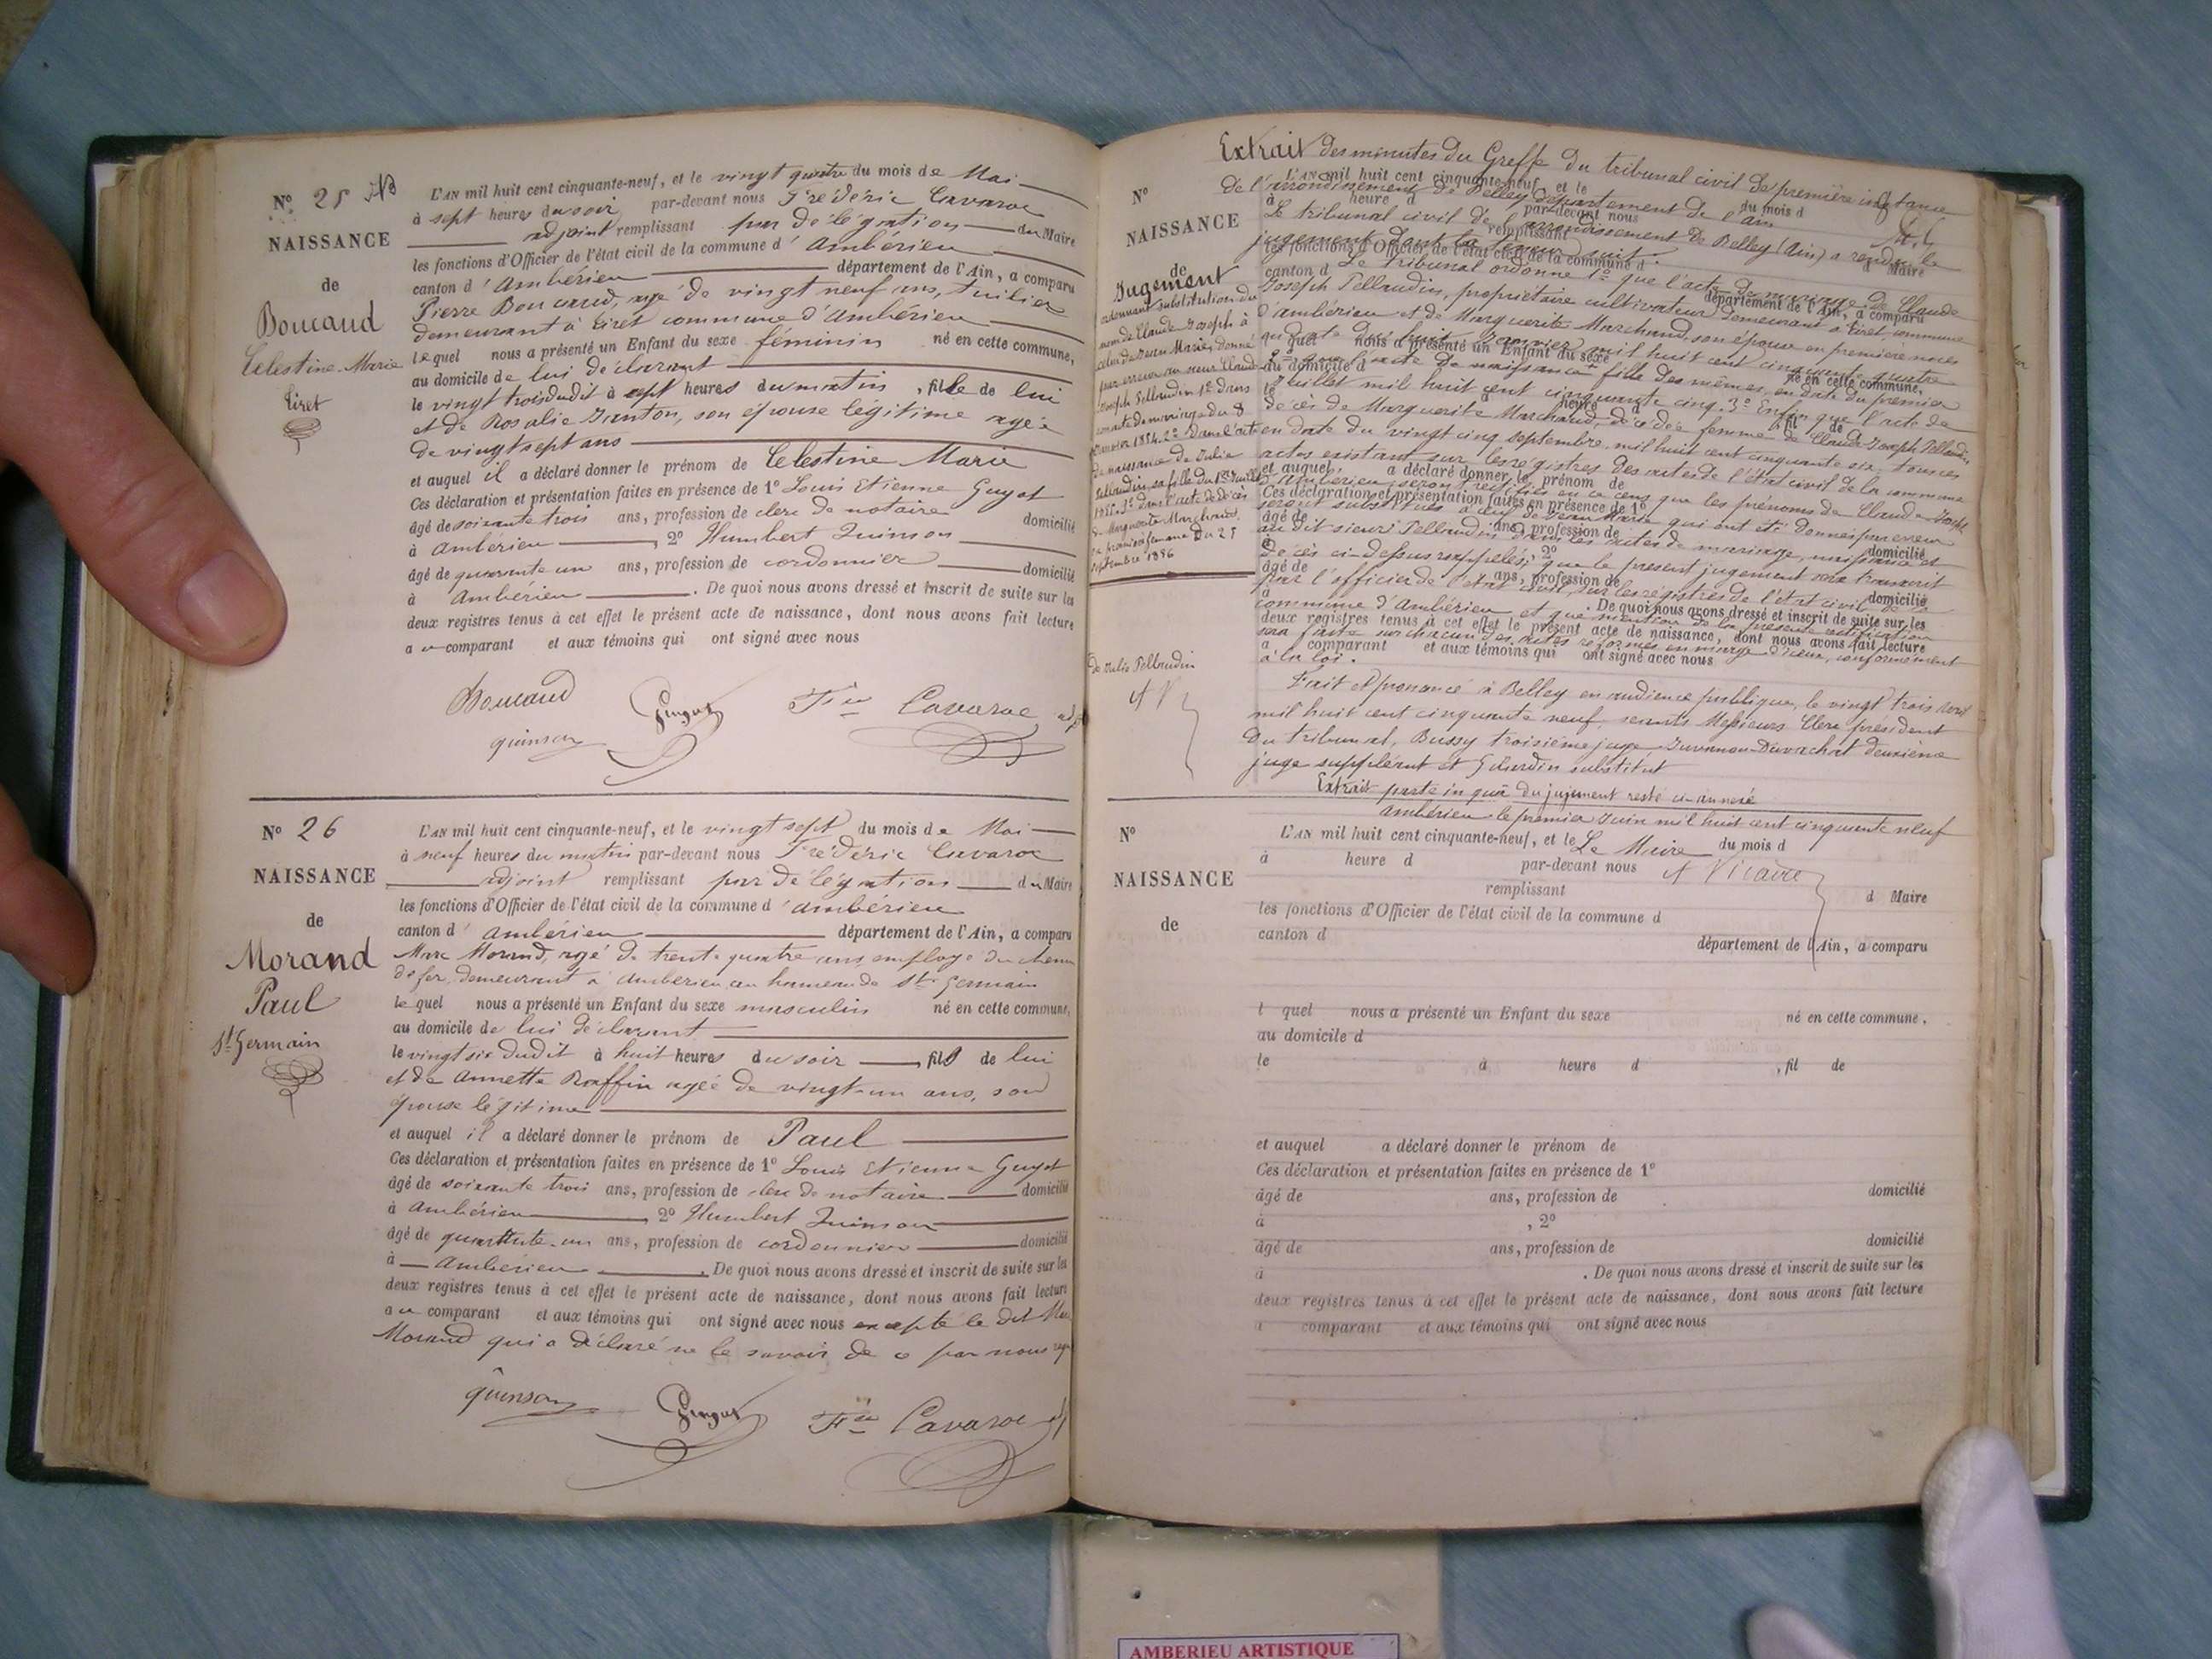 N° 25
NAISSANCE
de
Boucaud
Celestine-Marie
Tiret
L'AN mil huit cent cinquante-neuf, et le vingt quatre du mois de Mai
à sept heures du soir par-devant nous Frédéric Cavaroc
adjoint remplissant par délégation du Maire
les fonctions d'Officier de l'état civil de la commune d'Ambérieu
canton d'Ambérieu département de l'Ain, a comparu
Pierre Boucaud, agé de vingt neuf ans, tuilier
demeurant à Tiret commune d'Ambérieu
lequel nous a présenté un Enfant du sexe féminin né en cette commune,
au domicile de lui déclarant
le vingt trois dudit à sept heures du matin, fille de lui
et de Rosalie Janton, son épouse légitime agée
de vingt sept ans
et auquel il a déclaré donner le prénom de Celestine Marie
Ces déclaration et présentation faites en présence de 1° Louis Etienne Guyot
âgé de soixante trois ans, profession de clerc de notaire domicilié
à Ambérieu, 2° Humbert Quinson
âgé de quarante un ans, profession de cordonnier domicilié
à Ambérieu. De quoi nous avons dressé et inscrit de suite sur les
deux registres tenus à cet effet le présent acte de naissance, dont nous avons fait lecture
au comparant et aux témoins qui ont signé avec nous
Boucaud Guyot Fric Cavaroc adj
quinson
N° 26
NAISSANCE
de
Morand
Paul
St Germain
L'AN mil huit cent cinquante-neuf, et le vingt sept du mois de Mai
à neuf heures du matin par-devant nous Frédéric Cavaroc
adjoint remplissant par délégation du Maire
les fonctions d'Officier de l'état civil de la commune d'Ambérieu
canton d'Ambérieu département de l'Ain, a comparu
Marc Morand, agé de trente quatre ans employé du chemin
de fer, demeurant à Ambérieu au hameau de St Germain
lequel nous a présenté un Enfant du sexe masculin né en cette commune,
au domicile de lui déclarant
le vingt six dudit à huit heures du soir, fils de lui
et de Annette Roffin agée de vingt-un ans, son
épouse légitime
et auquel il a déclaré donner le prénom de Paul
Ces déclaration et présentation faites en présence de 1° Louis Etienne Guyot
âgé de soixante trois ans, profession de clerc de notaire domicilié
à Ambérieu, 2° Humbert Quinson
âgé de quarante-un ans, profession de cordonnier domicilié
à Ambérieu. De quoi nous avons dressé et inscrit de suite sur les
deux registres tenus à cet effet le présent acte de naissance, dont nous avons fait lecture
au comparant et aux témoins qui ont signé avec nous excepté le dit Marc
Morand qui a déclaré ne le savoir de ce par nous
quinson Guyot Fric Cavaroc adj
Extrait des minutes du Greffe du tribunal civil de première instance
de l'arrondissement de Belley département de l'ain
Le tribunal civil de l'arrondissement de Belley (Ain) a rendu le
jugement dont la teneur suit.
Le tribunal ordonne 1° que l'acte de mariage de Claude
Joseph Pellaudin, propriétaire cultivateur demeurant à Tiret, commune
d'ambérieu et de Marguerite Marchand, son épouse en premiere noces
en date du huit Janvier mil huit cent cinquante quatre
2° que l'acte de naissance fille des mêmes, en date du premier
Juillet mil huit cent cinquante cinq. 3° Enfin que l'acte de
décès de Marguerite Marchand, décédée femme de Claude Joseph Pellaudin,
en date du vingt cinq septembre mil huit cent cinquante six, tous ces
actes existant sur les régistres des actes de l'état civil de la commune
d'Ambérieu seront rectifiés en ce sens que les prénoms de Claude Joseph
seront substitués à ceux de Jean Marie qui ont été donnés par erreur
au dit sieur Pellaudin dans les actes de mariage, naissance et
décès ci-dessus rappelés; que le present jugement sera transcrit
par l'officier de l'état civil, sur les registres de l'état civil de la
commune d'Ambérieu, et que mention de la présente rectification
sera faite sur chacun des actes réformés en marge d'iceux, conformément
à la loi.
Fait et prononcé à Belley en audience publique, le vingt trois
mil huit cent cinquante neuf seants Messieurs Clerc président
du tribunal, Bussy troisième juge Juvanon-Duvachat deuxième
juge suppléant et substitut
Extrait parte in quâ du jugement resté ci-annexé
ambérieu le premier Juin mil huit cent cinquante neuf
Le Maire
A Vicaire
N°
NAISSANCE
de
Jugement
ordonnant substitution du
nom de Claude Joseph à
celui de Jean Marie, donné
par erreur au sieur Claude
Joseph Pellaudin 1° dans
son acte de mariage du 8
janvier 1854. 2° Dans l'acte
de naissance de Julie
Pellaudin, sa fille du 1er Juillet
1855. 3° dans l'acte de décès
de Marguerite Marchand,
sa première femme du 25
septembre 1856
de Julie Pellaudin
A V
L'AN mil huit cent cinquante-neuf, et le du mois d
à heure d par-devant nous
remplissant d Maire
les fonctions d'Officier de l'état civil de la commune d
canton d département de l'Ain, a comparu
l quel nous a présenté un Enfant du sexe né en cette commune,
au domicile d
le à heure d , fil de
et auquel a déclaré donner le prénom de
Ces déclaration et présentation faites en présence de 1°
âgé de ans, profession de domicilié
à , 2°
âgé de ans, profession de domicilié
à . De quoi nous avons dressé et inscrit de suite sur les
deux registres tenus à cet effet le présent acte de naissance, dont nous avons fait lecture
a comparant et aux témoins qui ont signé avec nous
N°
NAISSANCE
de
L'AN mil huit cent cinquante-neuf, et le du mois d
à heure d par-devant nous
remplissant d Maire
les fonctions d'Officier de l'état civil de la commune d
canton d département de l'Ain, a comparu
l quel nous a présenté un Enfant du sexe né en cette commune.
au domicile d
le à heure d , fil de
et auquel a déclaré donner le prénom de
Ces déclaration et présentation faites en présence de 1°
âgé de ans, profession de domicilié
à , 2°
âgé de ans, profession de domicilié
à . De quoi nous avons dressé et inscrit de suite sur les
deux registres tenus à cet effet le présent acte de naissance, dont nous avons fait lecture
a comparant et aux témoins qui ont signé avec nous
AMBERIEU ARTISTIQUE